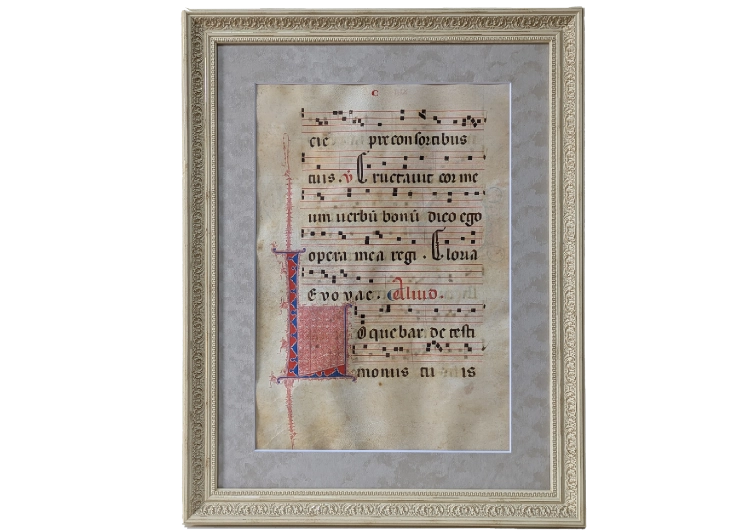 cie pre consortibus
tuis. v Eructavit cor me
um verbū bonū dico ego
opera mea regi. Gloria
Evovae. Aliud.
Loquebar. de testi
monus tuis